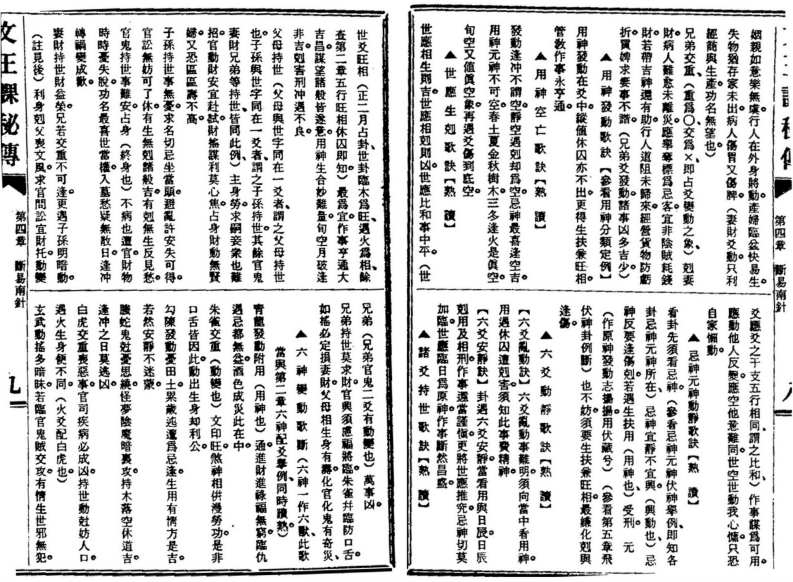 文王課秘傳
姻親如意樂無壞行人在外身將動產婦臨盆快易生
失物猶存家未出病人傷胃又傷脾（妻財爻動只利
經商與生產功名無望也）
兄弟交重（重爲〇交爲×即占爻變動之象）剋妻
財病人難愈未離災應舉奪標爲忌客官非陰賊耗錢
財若帶吉神還有助行人道阻未歸來經營貨物防虧
折買婢求妻事不諧（兄弟爻發動諸事凶多吉少）
▲用神發動歌訣【參看用神分類定例】
用神發動在爻中縱値休囚亦不凶更得生扶兼旺相
管敎作事永亨通
▲用神空亡歌訣【熟讀】
發動逢冲不謂空靜空遇剋却爲空忌神最喜逢空吉
用神元神不可空春土夏金秋樹木三冬逢火是眞空
旬空又値眞空象再遇爻傷到底空
▲世應生剋歌訣【熟讀】
世應相生則吉世應相剋則凶世應比和事中平（世
爻應爻之干支五行相同謂之比和）作事謀爲可用
應動他人反變應空他意難同世空世動我心慵只恐
自家懶動
▲忌神元神動靜歌訣【熟讀】
看卦先須看忌神（參看忌神元神伏神舉例即知各
卦忌神元神所在）忌神宜靜不宜興（興動也）忌
神反要逢傷剋若遇生扶用（用神也）受刑　元
（作原神發動志揚揚用伏藏兮）（參看第五章飛
伏神卦例斷）也不妨須要生扶兼旺相最嫌化剋與
逢傷
▲六爻動靜歌訣【熟讀】
【六爻亂動訣】六爻亂動事難明須向當中看用神
用遇休囚遭剋害須知此事費精神
【六爻安靜訣】卦遇六爻安靜當看用與日辰日辰
剋用及相刑作事還當謹愼更將世應推究忌神切莫
加臨世應臨日爲原神作事斷然昌盛
▲諸爻持世歌訣【熟讀】
第四章　斷易南針
八
世爻旺相（正二月占卦世卦臨木爲旺遇火爲相餘
查第二章五行旺相休囚即知）最爲宜作事亨通大
吉昌謀望諸般皆遂意用神生合妙難量旬空月破逢
非吉剋害刑沖遇不良
父母持世（父母與世字同在一爻者謂之父母持世
也子孫與世字同在一爻者謂之子孫持世其餘官鬼
妻財兄弟等持世皆同此例）主身勞求嗣妾衆也難
招官動財安宜赴試財搖謀利莫心焦占身財動無賢
婦又恐區區壽不高
子孫持世事無憂求名切忌坐當頭避亂許安失可得
官訟無妨可了休有生無剋諸般吉有剋無生反見愁
官鬼持世事難安占身（終身也）不病也遭官財物
時時憂失脫功名最喜世當權入墓愁疑無散日逢沖
轉禍變成歡
妻財持世財益榮兄若交重不可逢更遇子孫明暗動
（註見後）利身剋父喪文風求官問訟宜財托動變
兄弟（兄弟官鬼二爻有動變也）萬事凶
兄弟持世莫求財官興須慮禍將臨朱雀幷臨防口舌
如搖必定損妻財父母相生身有壽化官化鬼有奇災
▲六神變動歌斷（六神一作六獸此歌
當與第二章六神配爻舉例同時讀熟）
靑龍發動附用（用神也）通進財進祿福無窮臨仇
遇忌都無益酒色成災此在中
朱雀交重（動變也）文印旺煞神相併漫勞功是非
口舌皆因此動出生身却利公
勾陳發動憂田土累歲迍邅爲忌逢生用有情方是吉
若然安靜不迷蒙
螣蛇鬼尅憂思繞怪夢陰魔暗裏攻持木落空休道吉
逢沖之日莫逃凶
白虎交重喪惡事官司疾病必成凶持世動尅妨人口
遇火生身便不同（火爻配白虎也）
玄武動搖多暗昧若臨官鬼賊交攻有情生世邪無犯
文王課秘傳
第四章　斷易南針
九